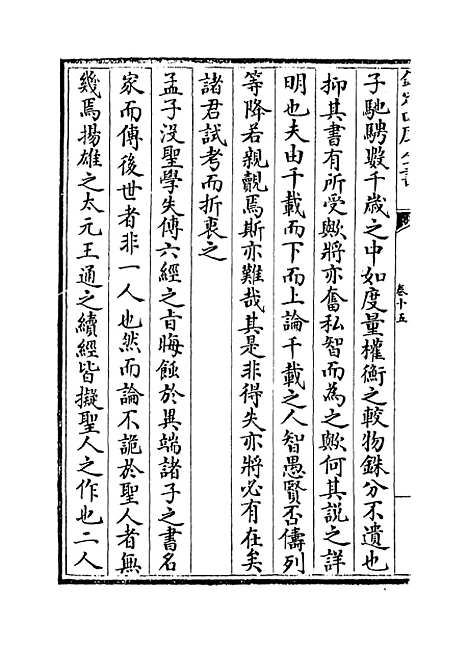 欽定四庫全書
卷十五
子馳騁數千歲之中如度量權衡之較物銖分不遺也
抑其書有所受歟將亦奮私智而為之歟何其說之詳
明也夫由千載而下而上論千載之人智愚賢否儔列
等降若親覿焉斯亦難哉其是非得失亦將必有在矣
諸君試考而折衷之
孟子沒聖學失傳六經之旨晦蝕於異端諸子之書名
家而傳後世者非一人也然而論不詭於聖人者無
幾焉揚雄之太元王通之續經皆擬聖人之作也二人